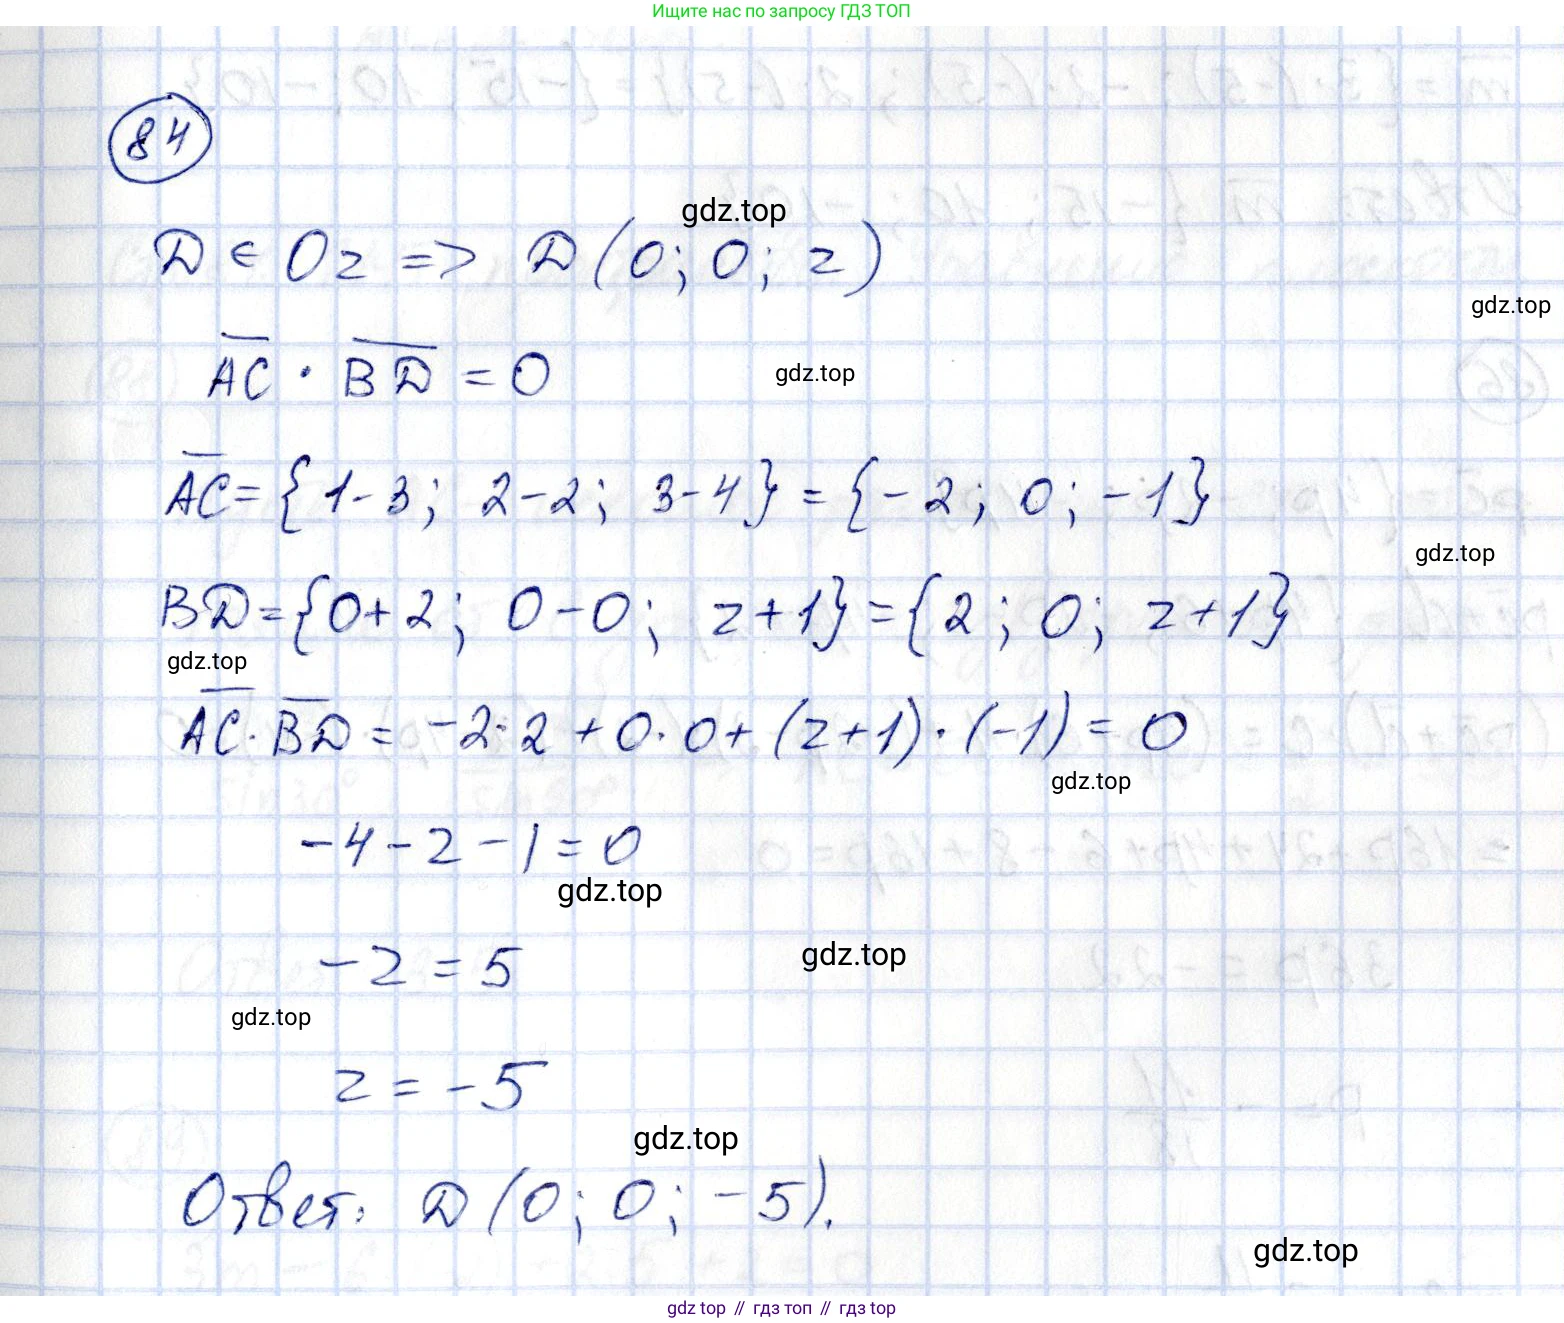 Ищите нас по запросу ГДЗ ТОП
84
gdz.top
D ∈ Oz => D (0; 0; z)
gdz.top
AC · BD = 0
gdz.top
AC = {1-3; 2-2; 3-4} = {-2; 0; -1}
gdz.top
BD = {0+2; 0-0; z+1} = {2; 0; z+1}
gdz.top
AC · BD = -2·2 + 0·0 + (z+1)·(-1) = 0
gdz.top
-4 - z - 1 = 0
gdz.top
-z = 5
gdz.top
gdz.top
z = -5
gdz.top
Ответ: D (0; 0; -5).
gdz.top
gdz top // гдз топ // гдз top